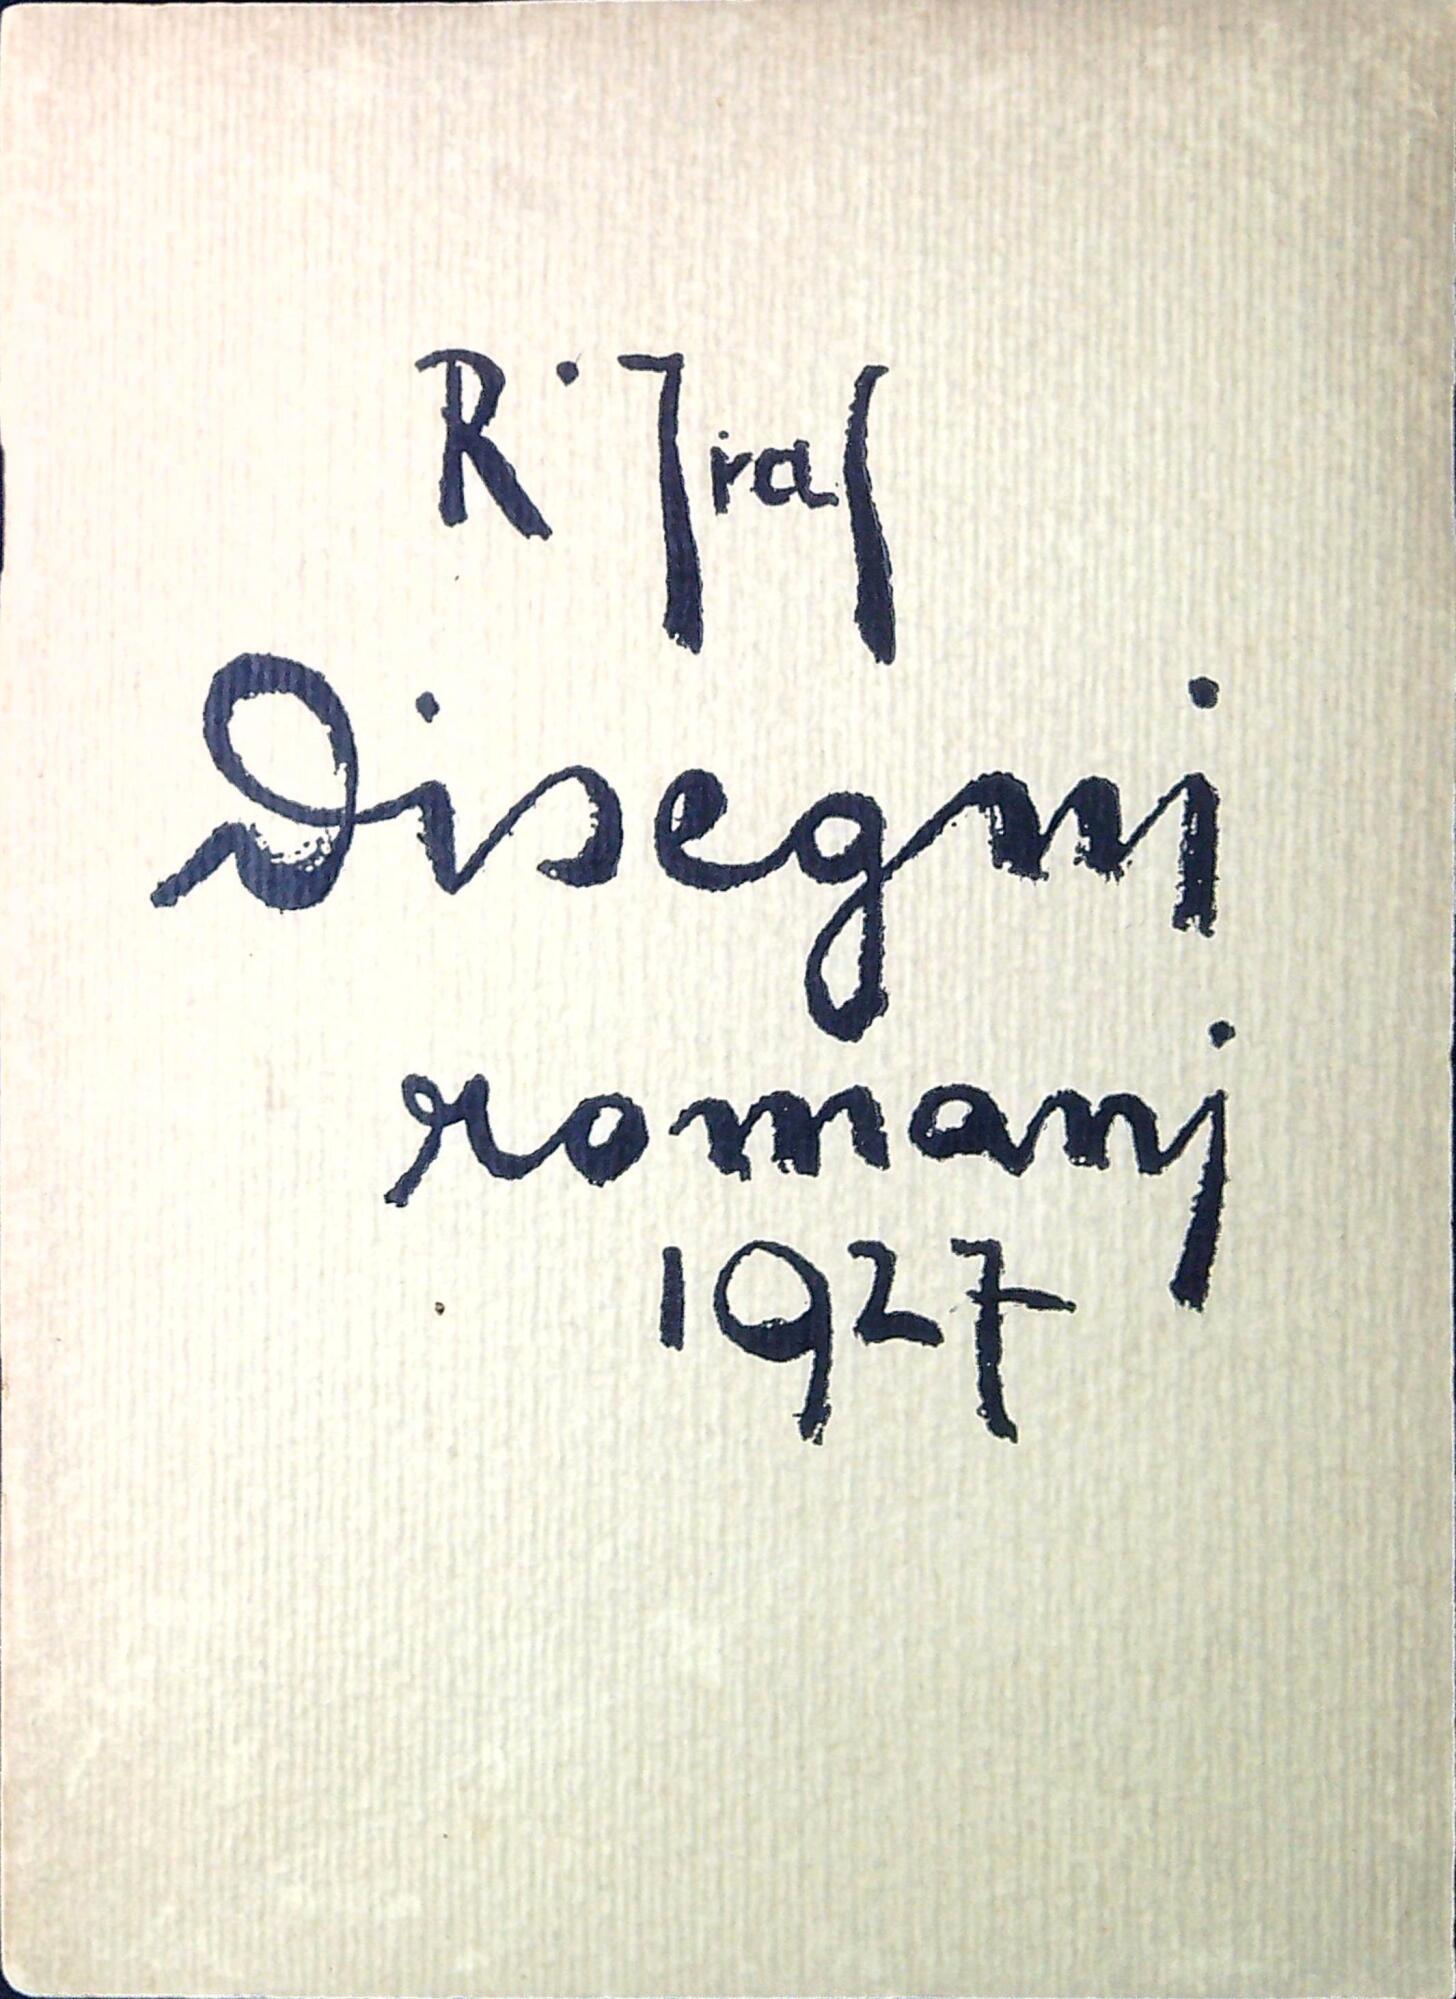 R. Jras
Disegni
romanj
1927